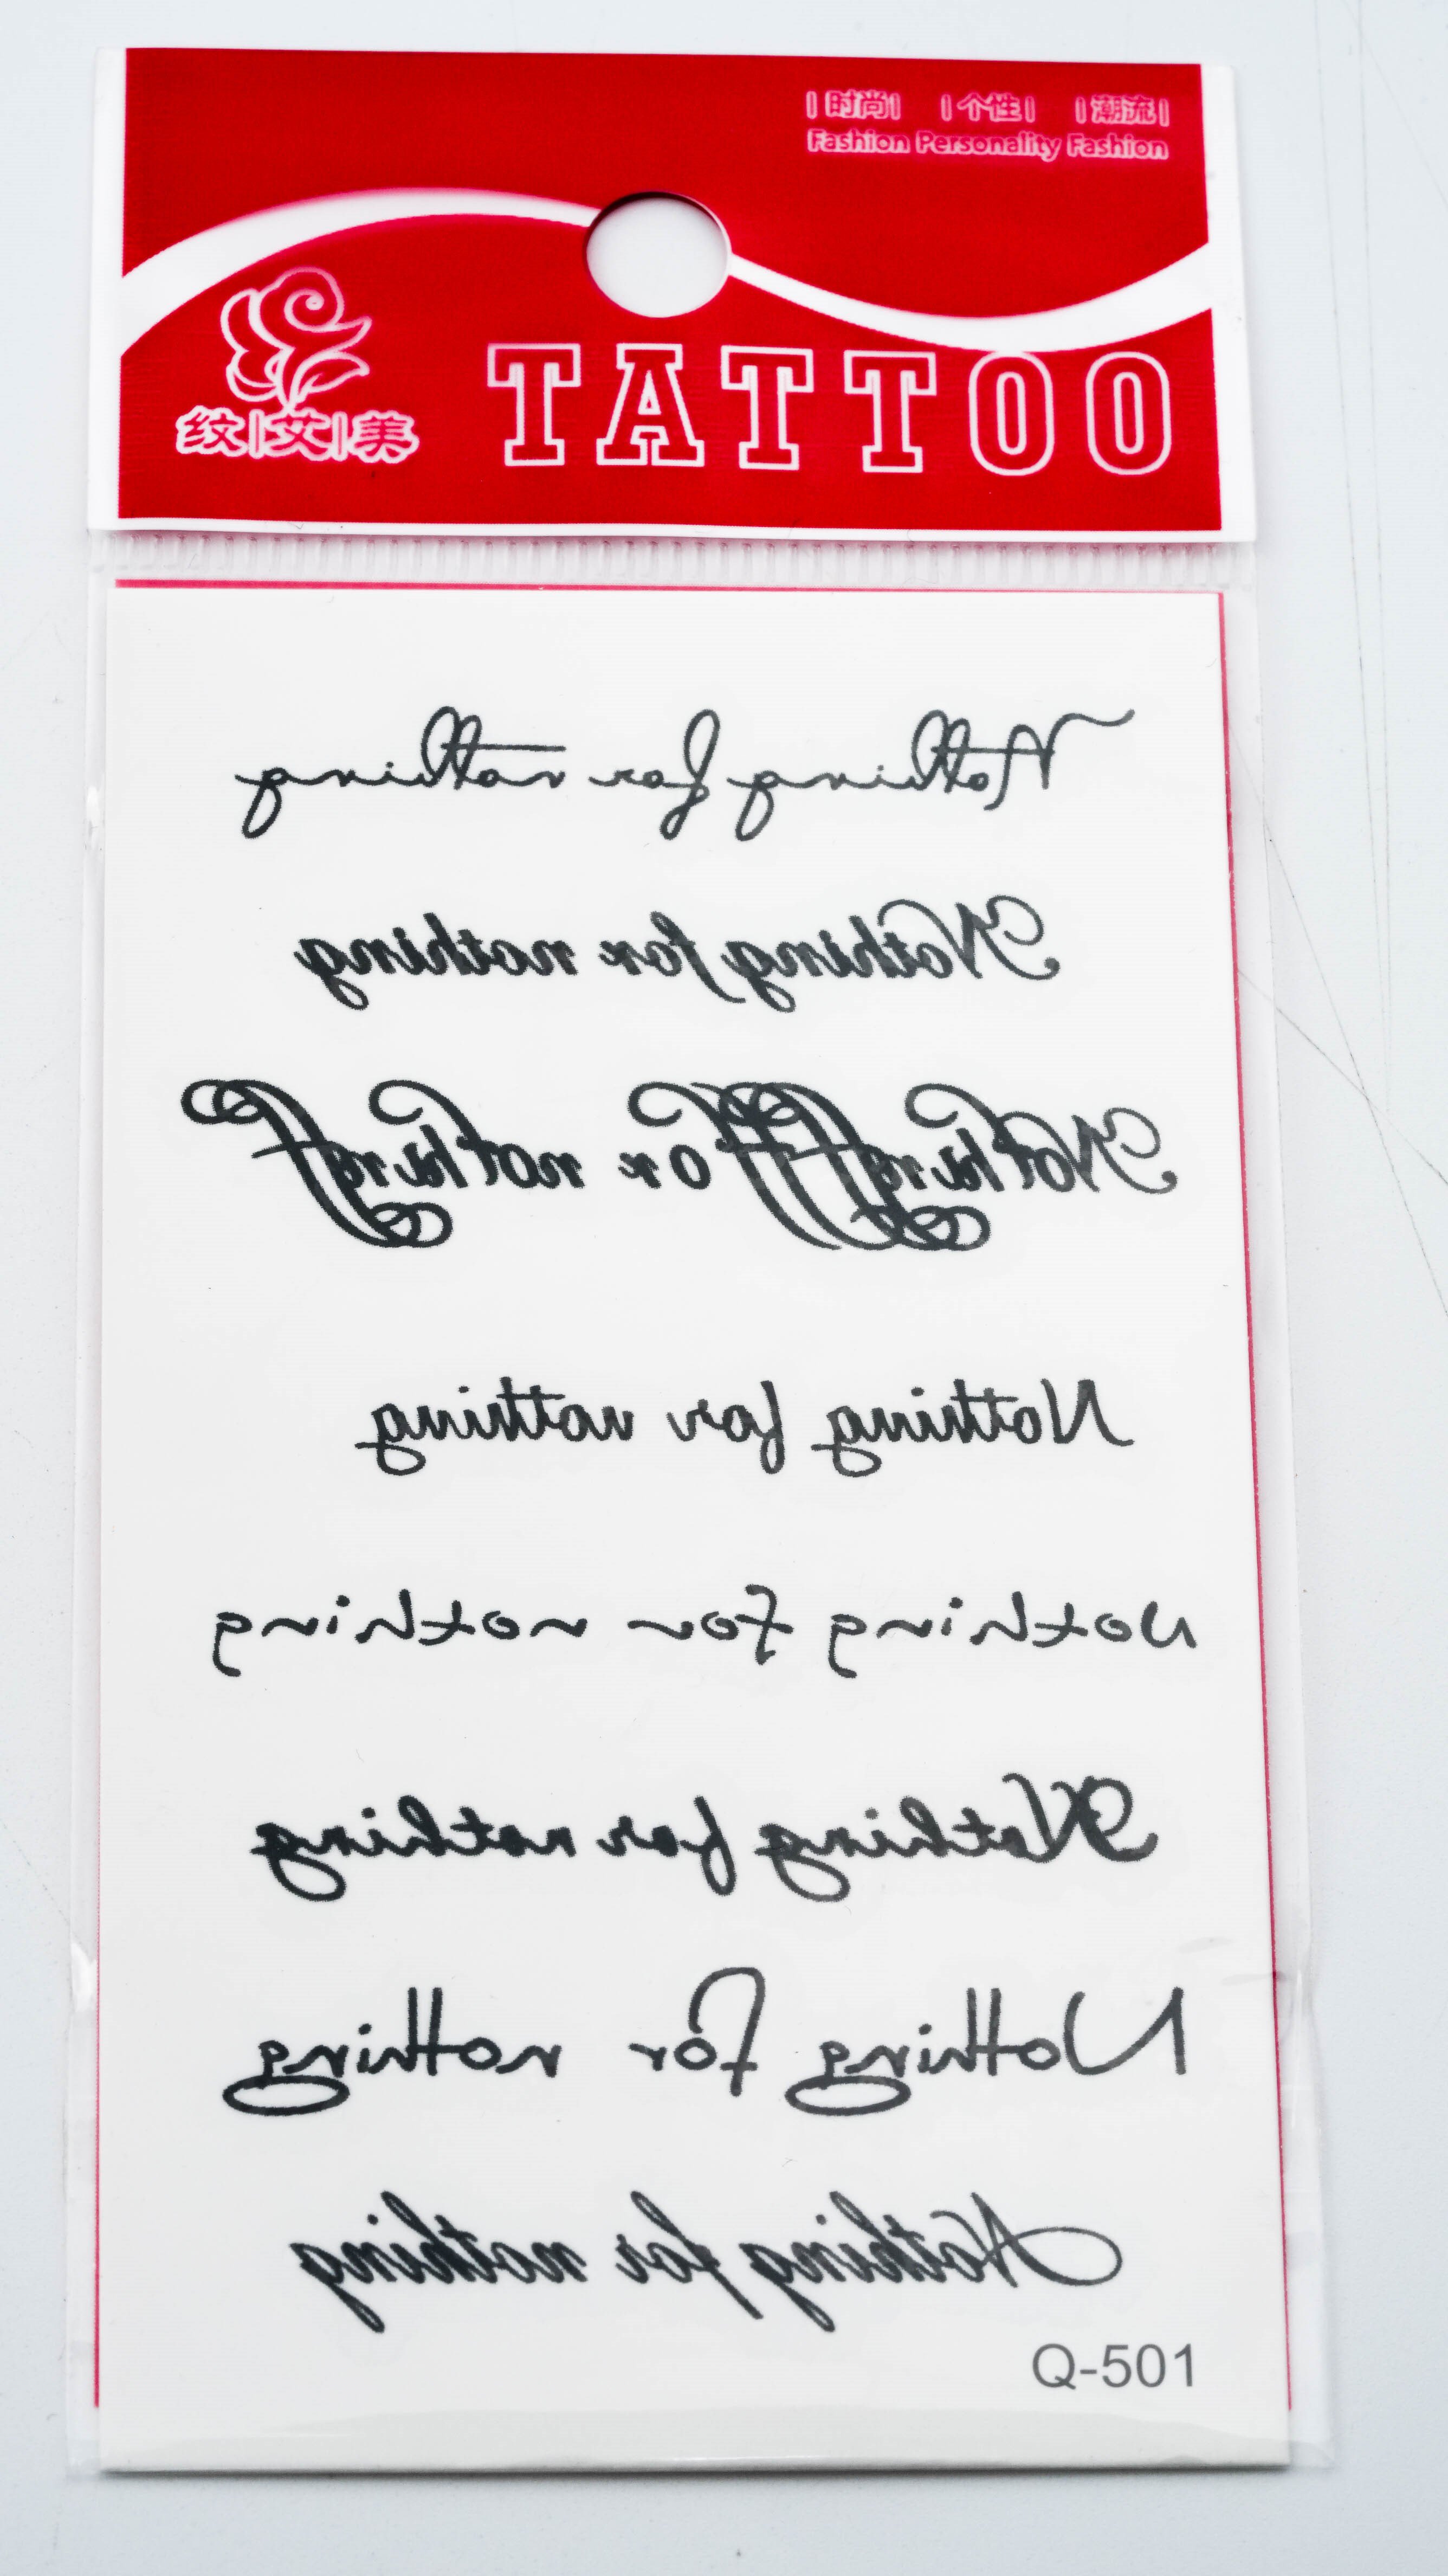 |时尚| |个性| |潮流|
Fashion Personality Fashion
纹|艾|美
TATTOO
Nothing for nothing
Nothing for nothing
Nothing for nothing
Nothing for nothing
Nothing for nothing
Nothing for nothing
Nothing for nothing
Nothing for nothing
Q-501